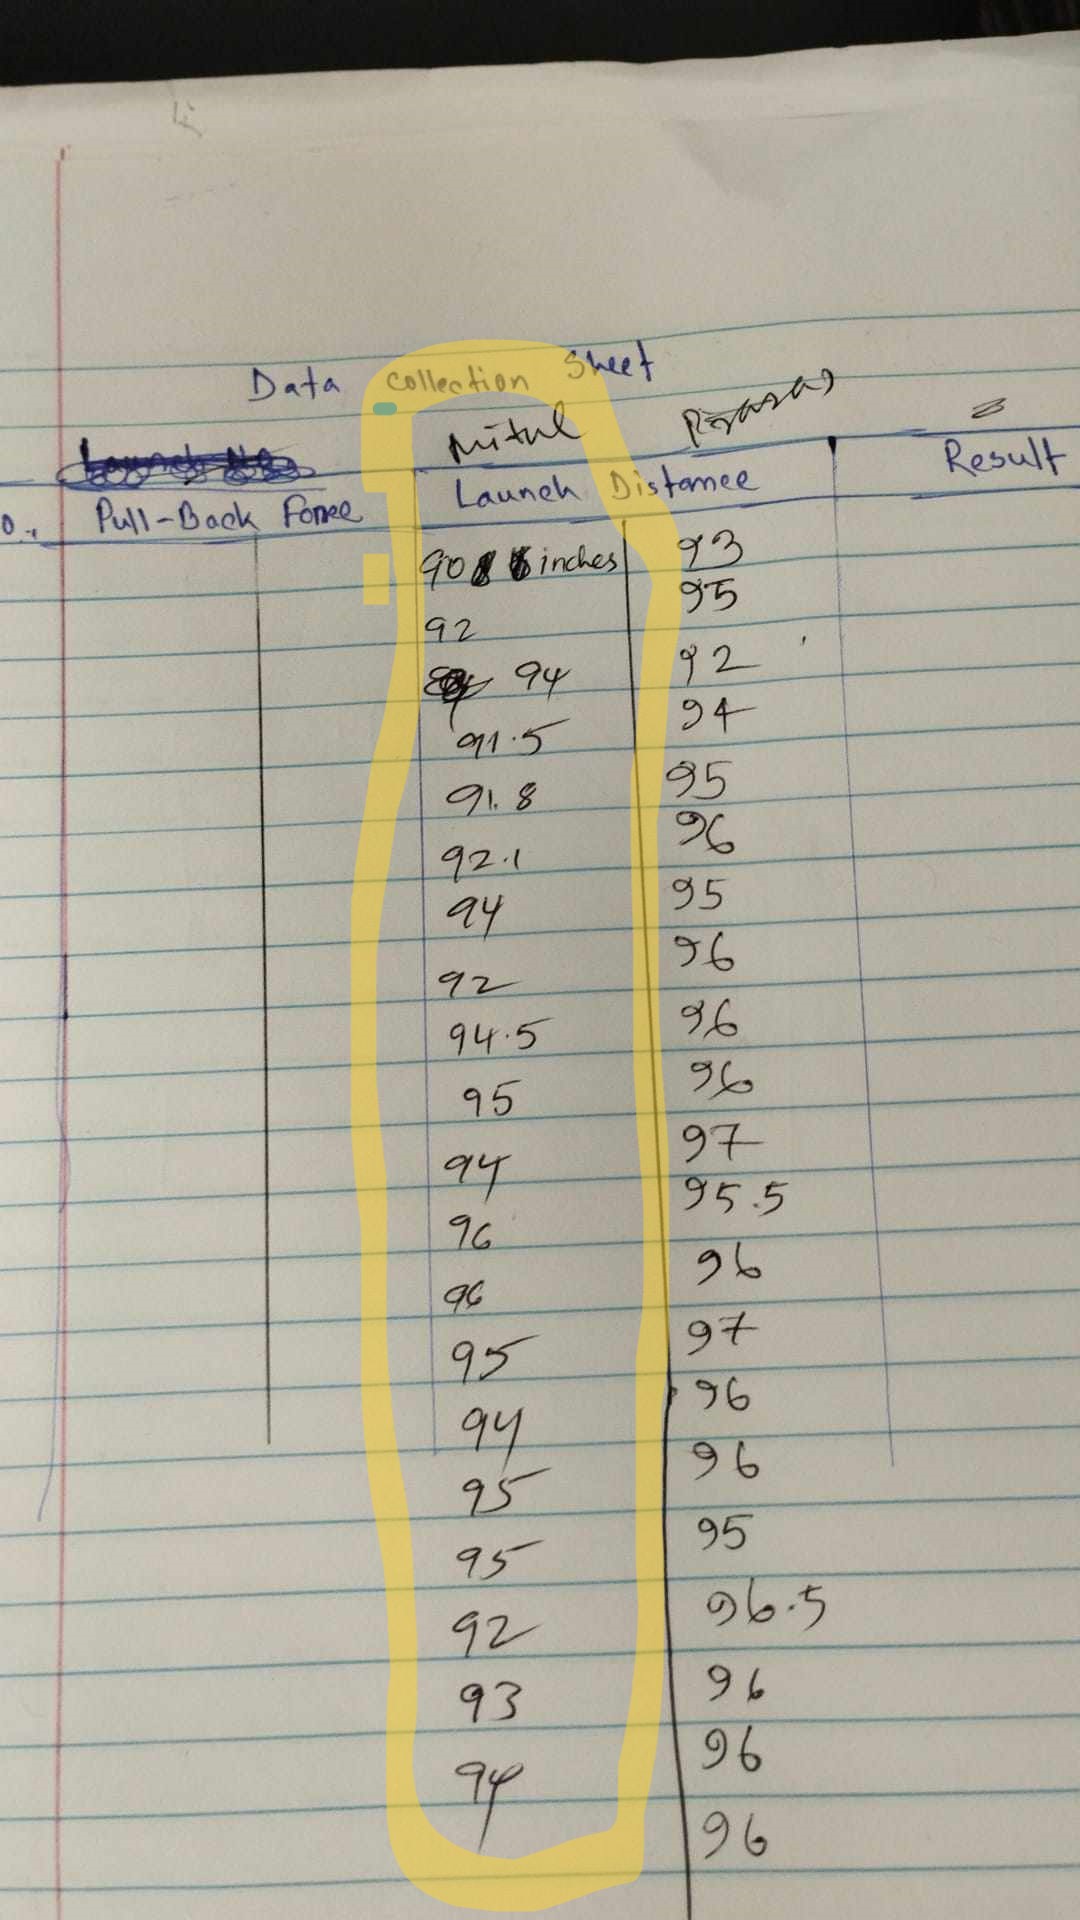 Data collection Sheet
Mitul
Launch Distance Result
Pull-Back Force
90 inches 93
92 95
94 92
91.5 94
91.8 95
92.1 96
94 95
92 96
94.5 96
95 96
94 97
96 95.5
96 96
95 97
94 96
95 96
95 95
92 96.5
93 96
94 96
96